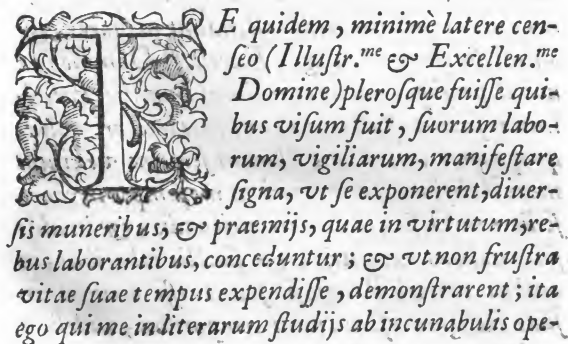 TE quidem, minimè latere cen-
ſeo (Illuſtr.me & Excellen.me
Domine) pleroſque fuiſſe qui-
bus viſum fuit, ſuorum labo-
rum, vigiliarum, manifeſtare
ſigna, vt ſe exponerent, diuer-
ſis muneribus, & praemijs, quae in virtutum, re-
bus laborantibus, conceduntur; & vt non fruſtra
vitae ſuae tempus expendiſſe, demonſtrarent; ita
ego qui me in literarum ſtudijs ab incunabulis ope-